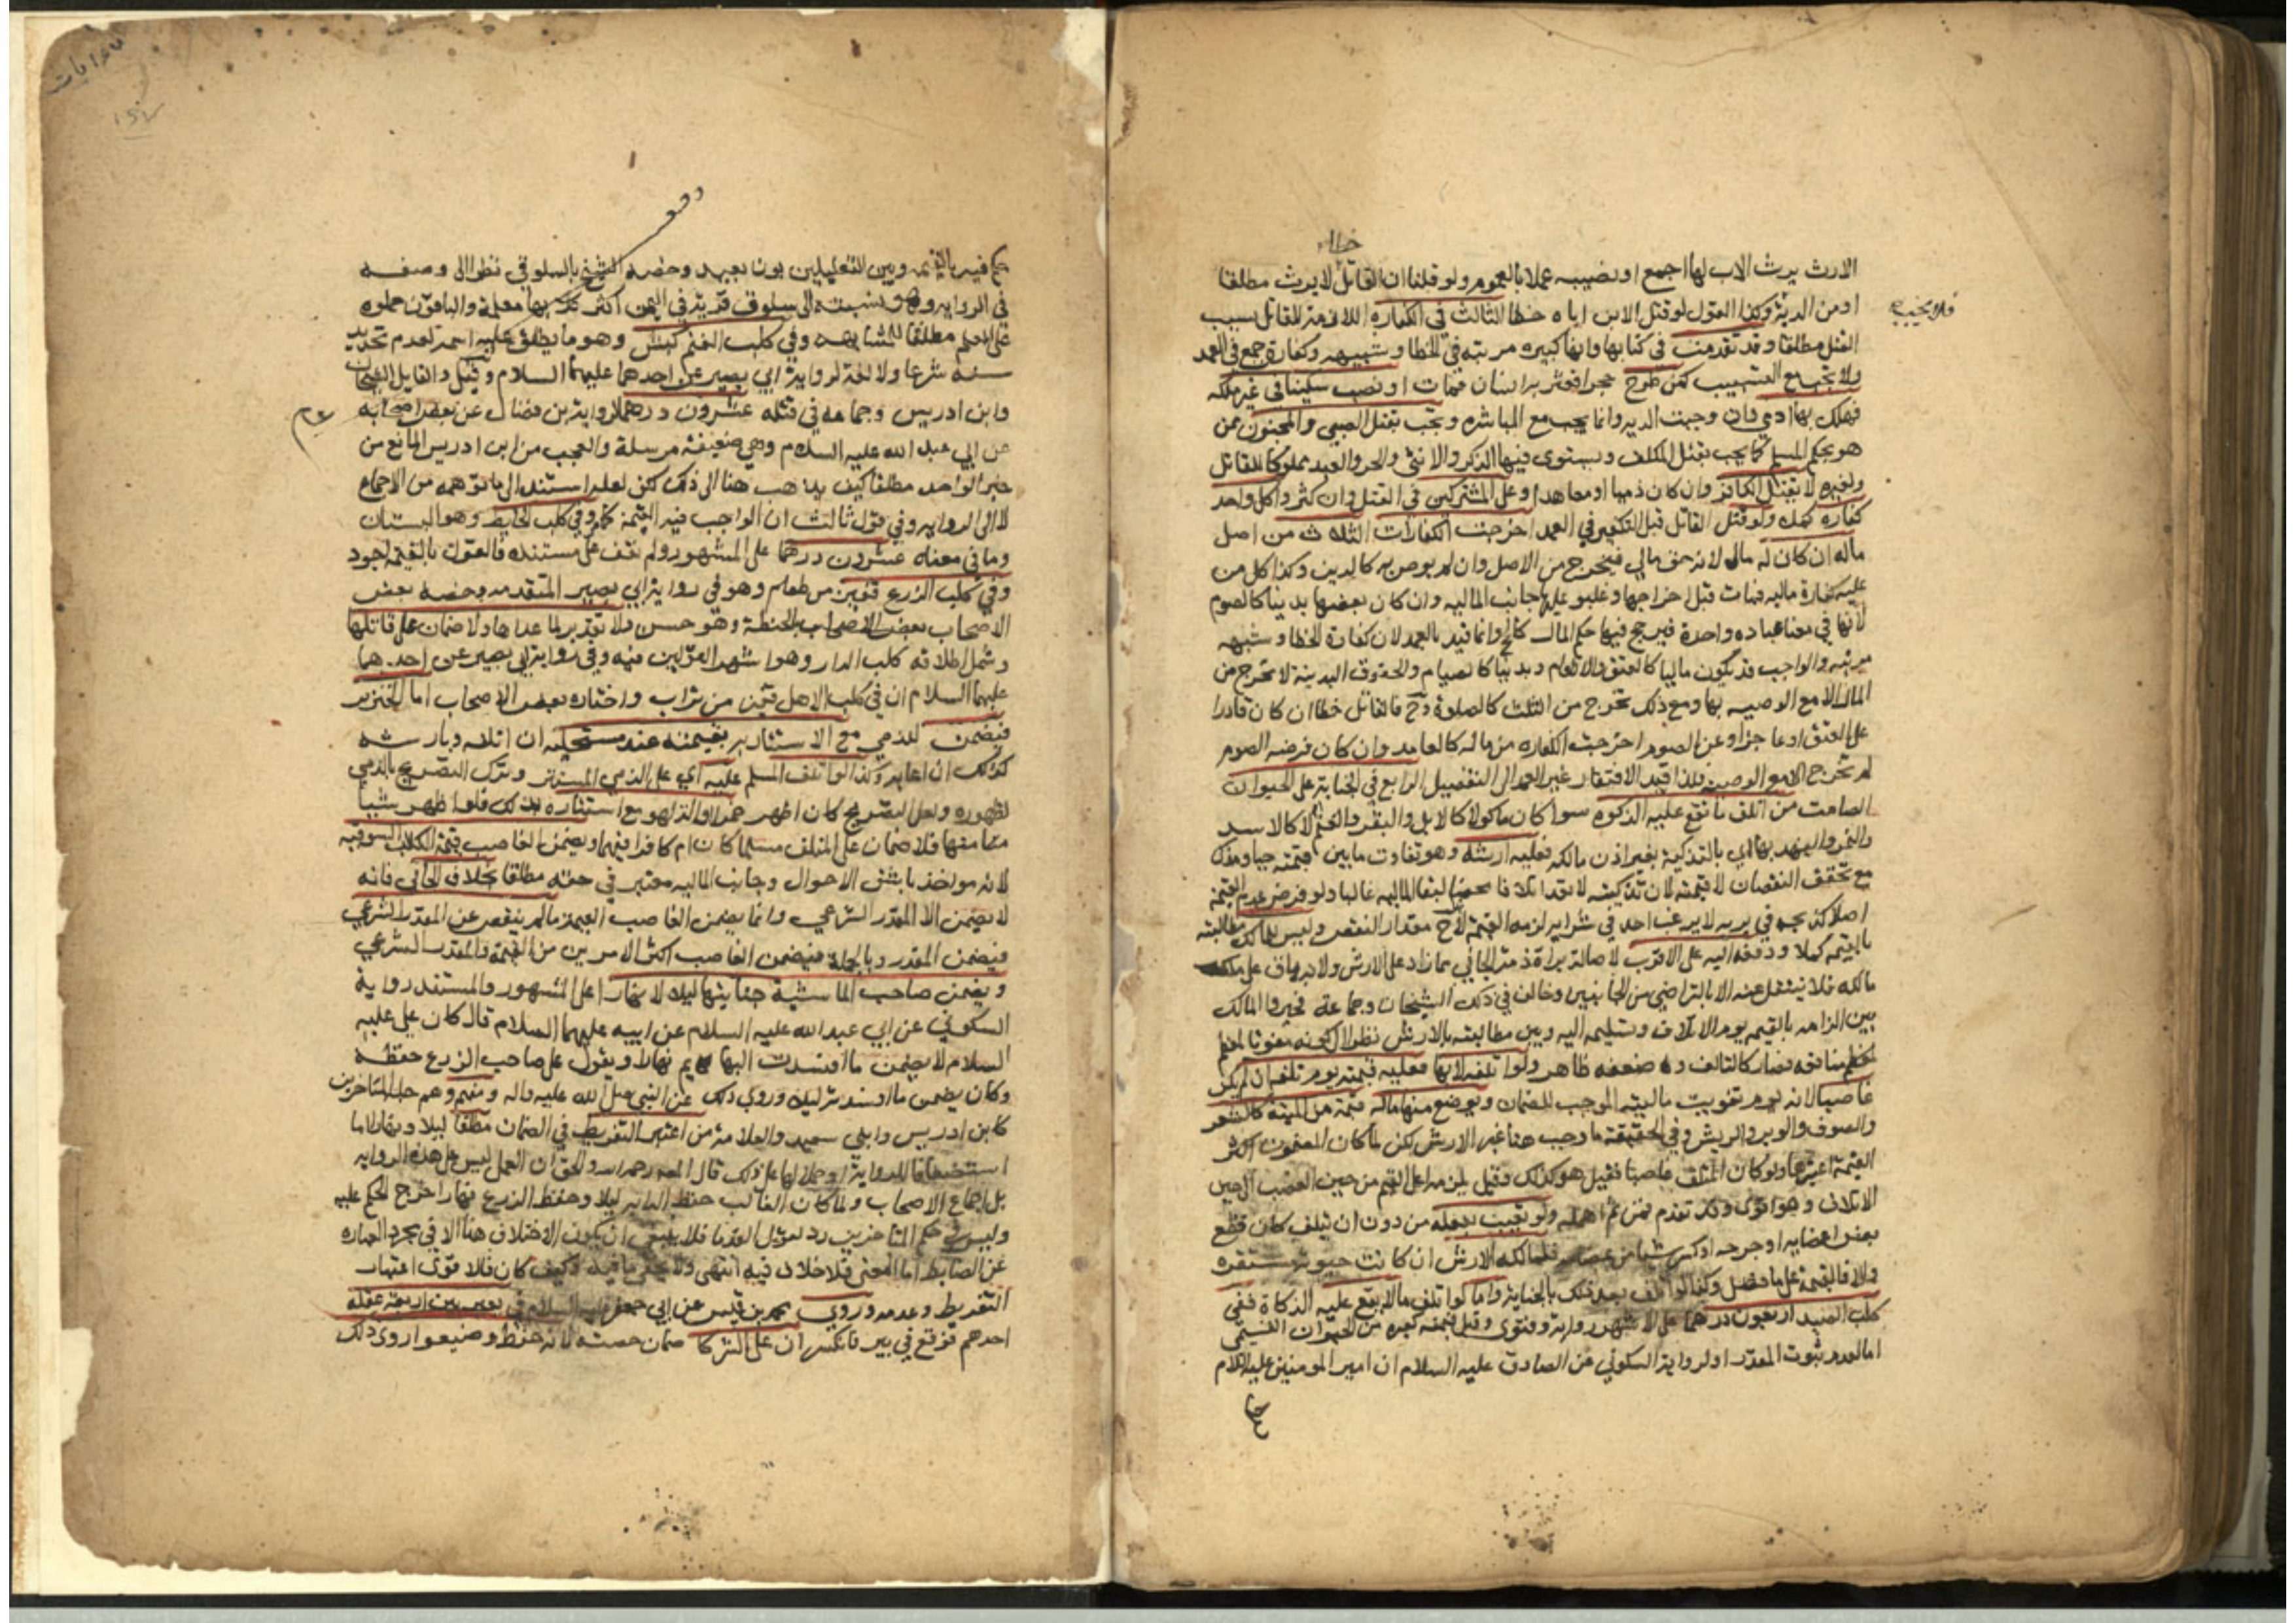 خطا
الارث يرث الاب لها اجمع او نصيبه عملا بالعموم ولو قلنا ان القاتل لا يرث مطلقا
او من الدية وكذا القول لو قتل الابن اباه خطا الثالث في الكفارة اللازمة للقاتل بسبب
القتل مطلقا وقد تقدمت في كتابها وانها كبيره مرتبة في الخطا وشبهه وكفارة جمع في العمد
ولا تجب مع التسبيب كمن طرح حجرا فعثر به انسان فمات او نصب سكينا في غير ملكه
فهلك بها ادمي وان وجبت الديه وانما يجب مع المباشره وتجب بقتل الصبي والمجنون ممن
هو بحكم المسلم كما يجب بقتل المكلف ويستوى فيها الذكر والانثى والحر والعبد مملوكا للقاتل
ولغيره لا بقتل الكافر وان كان ذميا او معاهدا وعلى المشتركين في القتل وان كثروا كل واحد
كفاره كمله ولو قتل القاتل قبل التكفير في العمد اخرجت الكفارات الثلاث من اصل
ماله ان كان له مال لانه حق مالي فيخرج من الاصل وان لم يوص به كالدين وكذا كل من
عليه كفارة ماليه فمات قبل اخراجها وغلبو عليها جانب الماليه وان كان بعضها بدنيا كالصوم
لانها في معنا عباده واحدة فيرجح فيها حكم المال كالحج وانما قيد بالعمد لان كفارة الخطا وشبهه
مرتبه والواجب قد يكون ماليا كالعتق والاطعام وبدنيا كالصيام والحقوق البدنية لا تخرج من
المال الا مع الوصيه بها ومع ذلك تخرج من الثلث كالصلوة وح فالقاتل خطا ان كان قادرا
على العتق او عاجزا وعن الصوم اخرجت الكفاره من ماله كالعامد وان كان فرضه الصوم
لم تخرج الا مع الوصية فلذا قيد الافتقار غير العمد الى التفصيل الرابع في الجناية على الحيوان
الصامت من اتلف ما تقع عليه الذكوه سوا كان ماكولا كالابل والبقر والغنم او لا كالاسد
والنمر والفهد بها اي بالتذكية بغير اذن مالكه فعليه ارشه وهو تفاوت ما بين قيمته حيا ومذكا
مع تحقق النقصان لا قيمته لان تذكيته لا تعد اتلافا محضا لبقا الماليه غالبا ولو فرض عدم القيمة
اصلا كذبحه في بريه لا يرغب احد في شرايه لزمه القيمة لانه ح مقدار النقص وليس للمالك مطالبته
بالقيمه كملا ودفعه اليه على الاقرب لاصالة براءة ذمة الجاني مما زاد على الارش ولانه باق على ملك
مالكه فلا ينتقل عنه الا بالتراضي من الجانبين وخالف في ذلك الشيخان وجماعة فخيروا المالك
بين الزامه بالقيمه يوم الاتلاف وتسليمه اليه وبين مطالبته بالارش نظرا الى كونه مفوتا لمعظم
منافعه فصار كالتالف وضعفه ظاهر ولو اتلفه لا بها فعليه قيمته يوم تلفه ان لم يكن
غاصبا لانه يوم تفويت ماليته الموجب للضمان ويوضع منها ماله قيمة من الميتة كالشعر
والصوف والوبر والريش وفي الحقيقة ما وجب هنا غير الارش لكن لما كان المضمون اكثر
القيمة اعتبرها ولو كان المتلف غاصبا فقيل هو كذلك وقيل يلزمه اعلى القيم من حين الغصب الى حين
الاتلاف وهو اقوى وقد تقدم فمن ثم اهمله ولو تعيب بفعله من دون ان يتلف كان قطع
بعض اعضايه او جرحه او كسر شيا من عظامه فلمالكه الارش ان كانت حيوته مستقره
والا فالقيمة على ما فصل وكذا لو تلف بعد ذلك بالجناية واما لو اتلف ما لا يقع عليه الذكاة ففي
كلب الصيد اربعون درهما على الاشهر رواية وفتوى وقيل قيمته كغيره من الحيوان القيمي
اما لعدم ثبوت المقدر او لرواية السكوني عن الصادق عليه السلام ان امير المومنين عليه السلام
حكم فيه بالقيمه وبين التعليلين بون بعيد وخصه الشيخ بالسلوقي نظرا الى وصفه
في الروايه وهو نسبة الى سلوق قرية في اليمن اكثر كلابها معلمة والباقون حملوه
على المعلم مطلقا للمشابهه وفي كلب الغنم كبش وهو ما يطلق عليه اسمه لعدم تحديد
سنه شرعا ولا لغة لرواية ابي بصير عن احدهما عليهما السلام وقيل والقايل الشيخان
وابن ادريس وجماعه في قتله عشرون درهما لرواية بن فضال عن بعض اصحابه
عن ابي عبد الله عليه السلام وهي ضعيفة مرسلة والعجب من ابن ادريس المانع من
خبر الواحد مطلقا كيف يذهب هنا الى ذلك لكن لعله استند الى ما توهمه من الاجماع
لا الى الروايه وفي قول ثالث ان الواجب فيه القيمة كما مر وفي كلب الحايط وهو البستان
وما في معناه عشرون درهما على المشهور ولم نقف على مستنده فالقول بالقيمة اجود
وفي كلب الزرع قفيز من طعام وهو في رواية ابي بصير المتقدمه وخصه بعض
الاصحاب بعض الاصحاب بالحنطة وهو حسن ولا تقدير لما عداها ولا ضمان على قاتلها
وشمل اطلاقه كلب الدار وهو اشهر القولين فيه وفي رواية ابي بصير عن احدهما
عليهما السلام ان في كلب الاهل قفيز من تراب واختاره بعض الاصحاب اما الخنزير
فيضمن للذمي مع الاستتار به بقيمته عند مستحليه ان اتلفه وبارشه
كذلك ان اعابه وكذا لو اتلف المسلم عليه اي على الذمي المستتر وترك التصريح بالذمي
لظهوره ولعل التصريح كان اظهر خمرا او الة لهو مع استتاره بذلك فلو اظهر شيا
منهما فلا ضمان على المتلف مسلما كان ام كافرا فيهما ويضمن الغاصب قيمة الكلب السوقيه
لانه مواخذ باشق الاحوال وجانب الماليه معتبر في حقه مطلقا بخلاف الجاني فانه
لا يضمن الا المقدر الشرعي وانما يضمن الغاصب القيمة ما لم ينقص عن المقدر الشرعي
فيضمن المقدر وبالجملة فيضمن الغاصب اكثر الامرين من القيمة والمقدر الشرعي
ويضمن صاحب الماشية جنايتها ليلا لا نهارا على المشهور والمستند رواية
السكوني عن ابي عبد الله عليه السلام عن ابيه عليهما السلام قال كان علي عليه
السلام لا يضمن ما افسدت البهايم نهارا ويقول على صاحب الزرع حفظه
وكان يضمن ما افسدته ليلا وروي ذلك عن النبي صلى الله عليه واله ومنهم وهم جل المتاخرين
كابن ادريس وابني سعيد والعلامة من اعتبر التفريط في الضمان مطلقا ليلا ونهارا اما
استضعافا للرواية او حملا لها على ذلك قال المص رحمه الله والحق ان العمل ليس على هذه الروايه
بل اجماع الاصحاب ولما كان الغالب حفظ الدابه ليلا وحفظ الزرع نهارا خرج الحكم عليه
وليس في حكم المتاخرين رد لقول القدما فلا ينبغي ان يكون الاختلاف هنا الا في مجرد العباره
عن الضابط اما المعنى فلا خلاف فيه انتهى ولا يخفى ما فيه وكيف كان فالاقوى اعتبار
التفريط وعدمه وروي محمد بن قيس عن ابي جعفر عليه السلام في بعير بين اربعة عقله
احدهم فوقع في بير فانكسر ان على الشركا ضمان حصته لانه حفظ وضيعوا روى ذلك